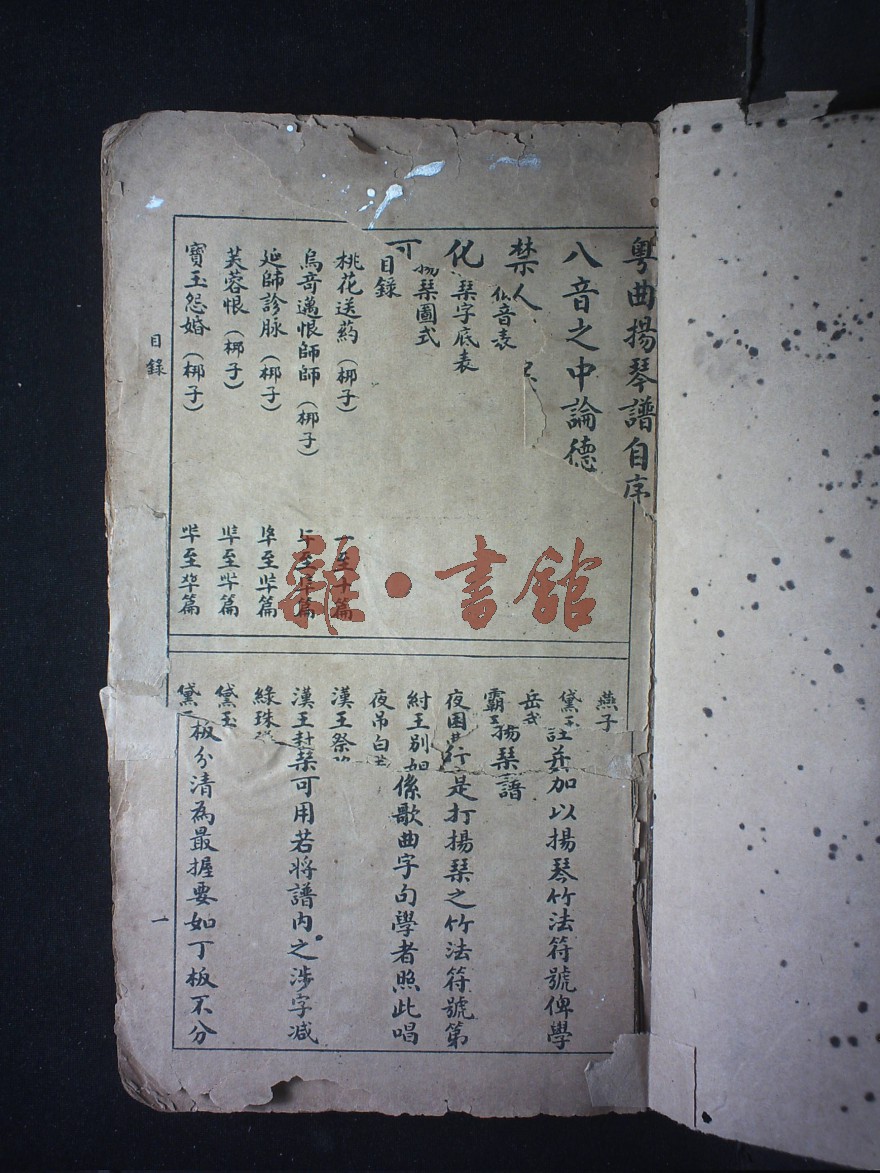 粵曲揚琴譜自序
八音之中論德
禁人
仙音表
化
琴字底表
可
揚琹圖式
目錄
桃花送葯（梆子）
烏竒邁恨師師（梆子）
延師診脉（梆子）
芙蓉恨（梆子）
寶玉怨婚（梆子）
目錄
一至十篇
至 篇
至 篇
至 篇
至 篇
雜·書館
燕子
黛玉
註並加以揚琴竹法符號俾學
岳武
霸王
揚琹譜
夜困
行 是打揚琹之竹法符號第
紂王別妲
係歌曲字句學者照此唱
夜吊白芙
漢王祭
漢王
琹可用若將譜內之涉字减
綠珠
黛玉
黛
板分清為最握要如丁板不分
一